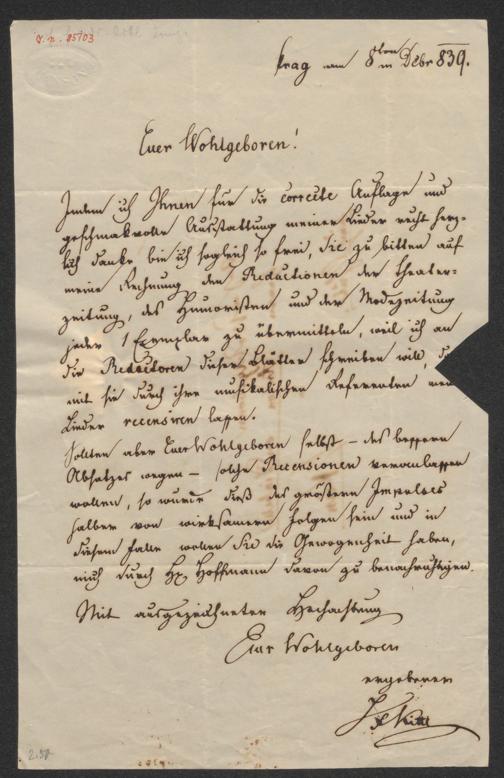 J. N. 85103
Prag am 8ten Dzbr 839.
Euer Wohlgeboren!
Indem ich Ihnen für die correcte Auflage und
geschmakvolle Ausstattung meiner Lieder recht herz-
lich danke bin ich sogleich so frei, Sie zu bitten auf
meine Rechnung den Redactionen der Theater-
zeitung, des Humoristen und der Modezeitung
jeder 1 Exemplar zu übermitteln, weil ich an
die Redactoren dieser Blätter schreiben will,
mit sie durch ihre musikalischen Referenten
Lieder recensiren lassen.
Sollten aber Euer Wohlgeboren selbst – des bessern
Absatzes wegen – solche Recensionen veranlassen
wollen, so würde dieß des größern Impulses
halber von wirksamern Folgen sein und in
diesem Falle wollen Sie die Gewogenheit haben,
mich durch H. Hoffmann davon zu benachrichtigen.
Mit ausgezeichneter Hochachtung
Euer Wohlgeboren
ergebener
Kittl